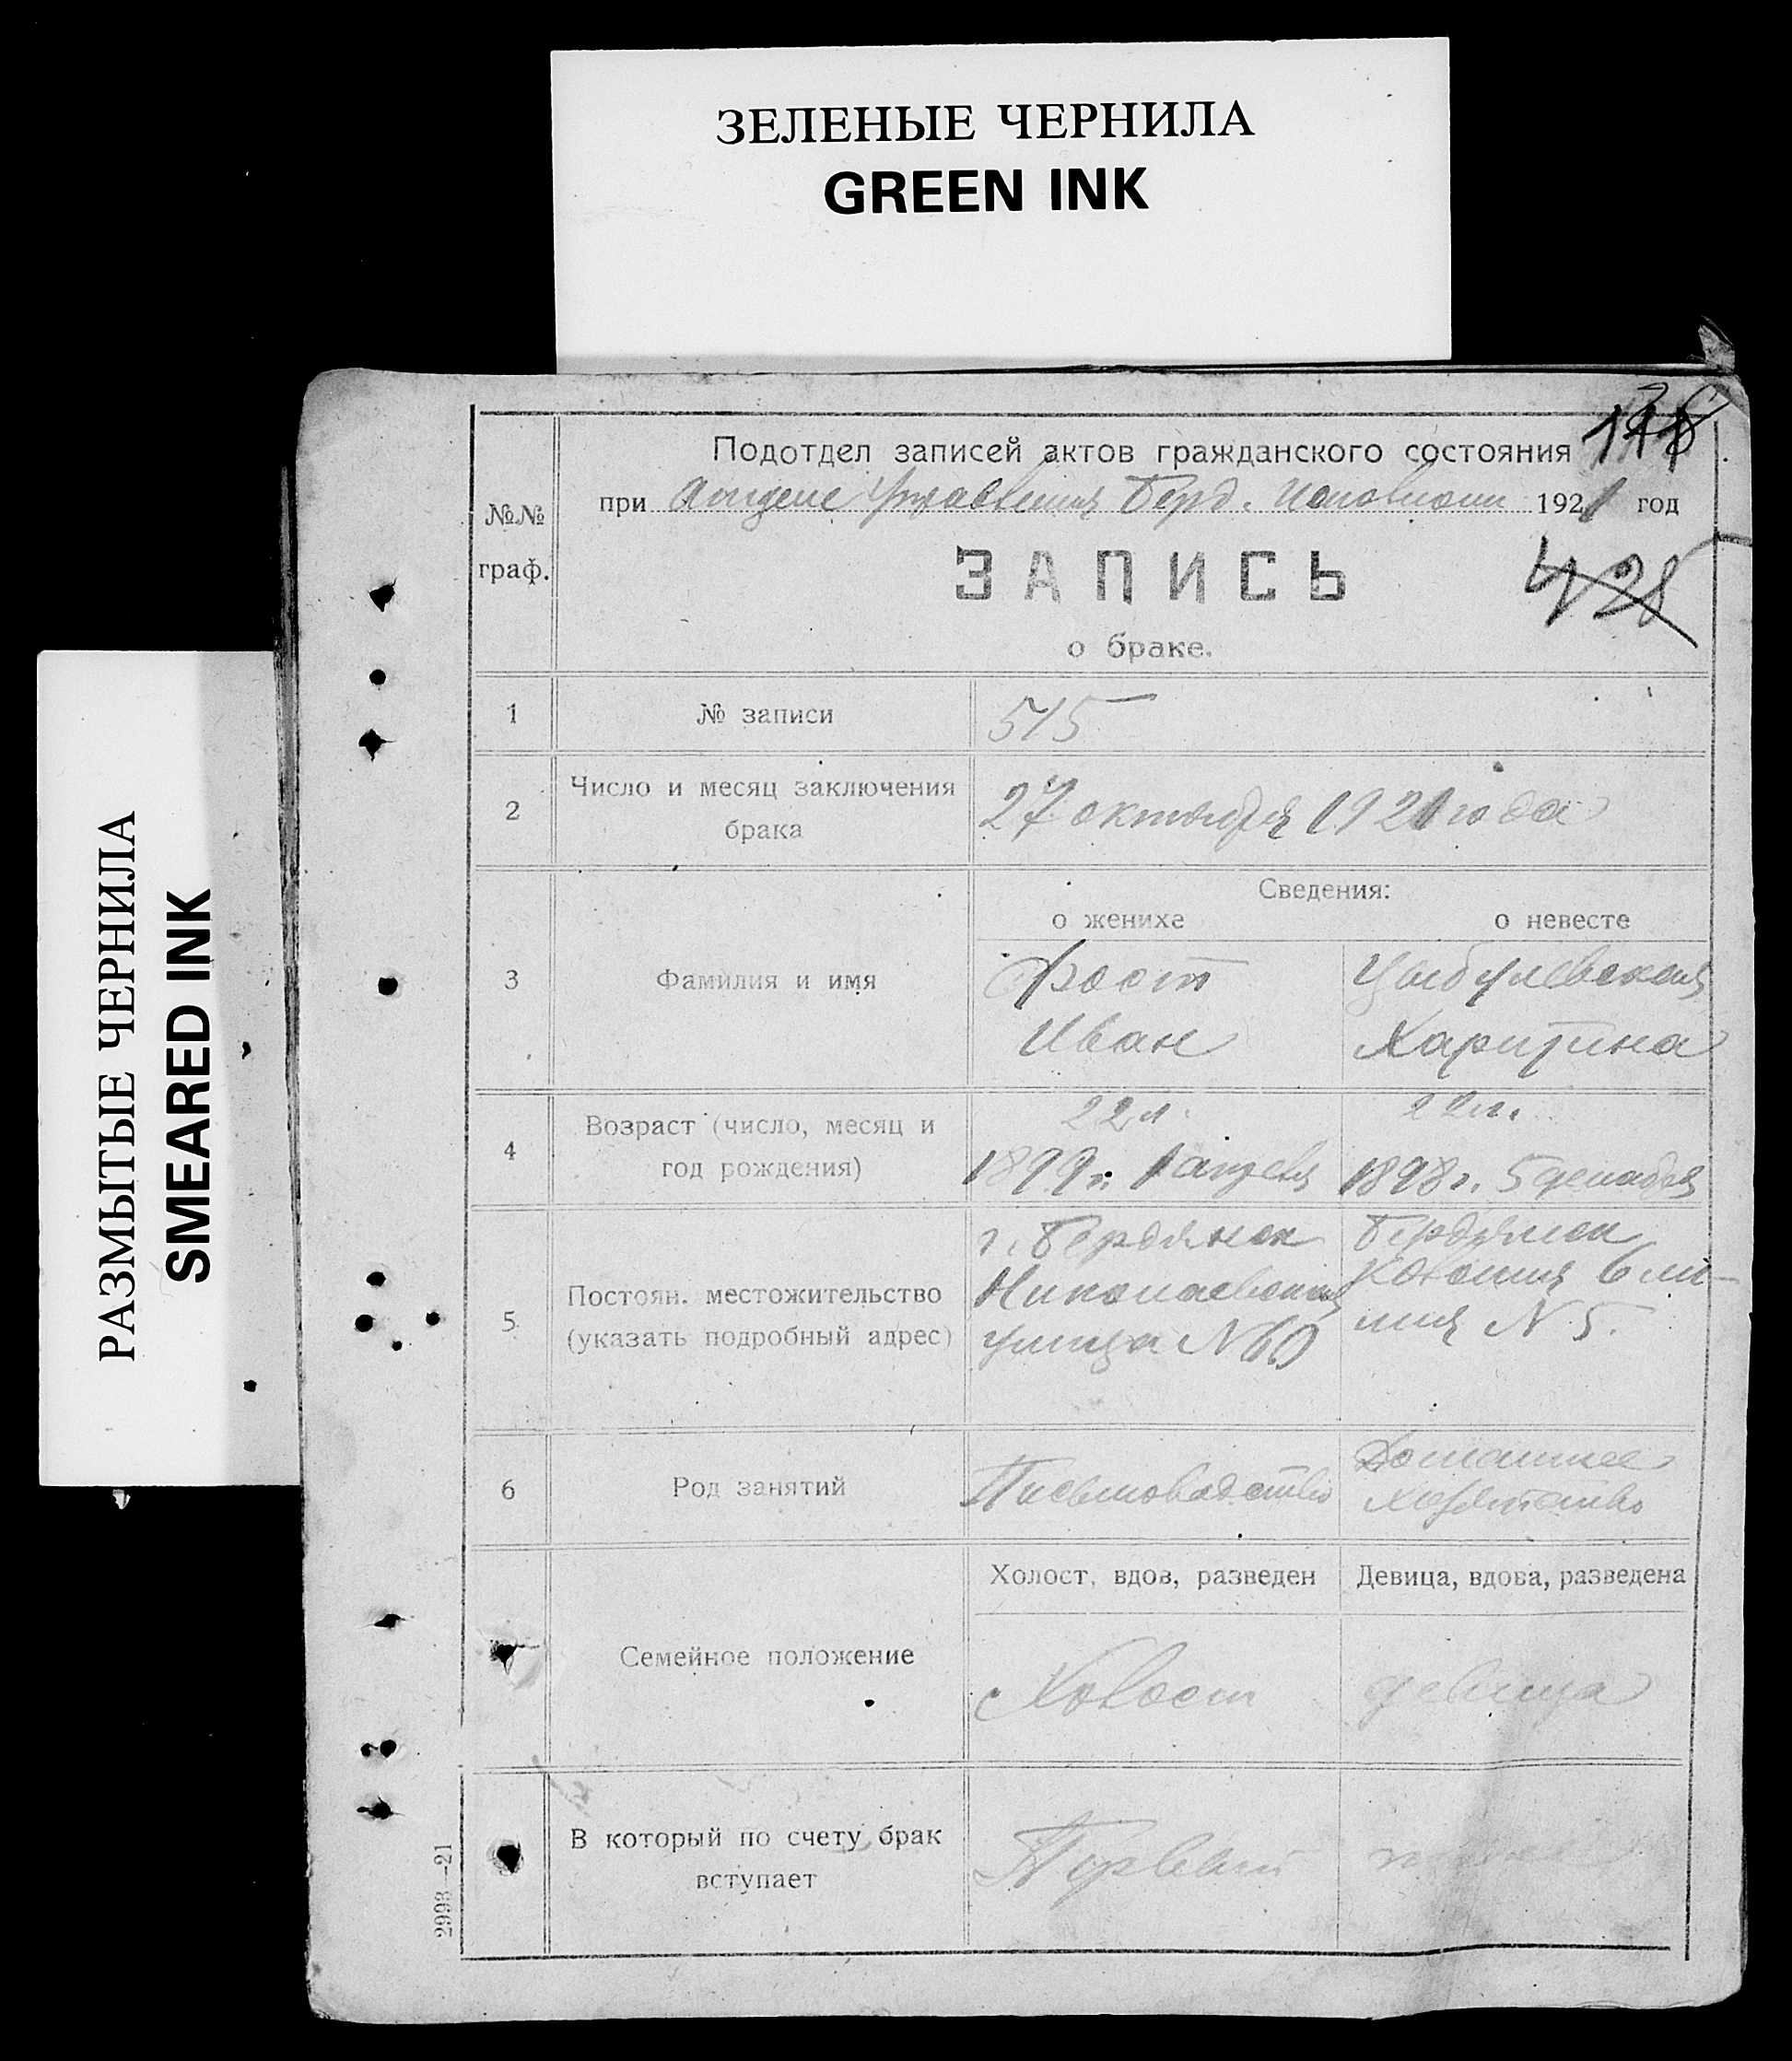 ЗЕЛЕНЫЕ ЧЕРНИЛА
GREEN INK
РАЗМЫТЫЕ ЧЕРНИЛА
SMEARED INK
Подотдел записей актов гражданского состояния
при Отделе Управления Берд. Исполкома 1921 год
№№
граф.
ЗАПИСЬ
428
о браке.
1 № записи 515
2 Число и месяц заключения
брака
27 октября 1921 года
Сведения:
о женихе о невесте
3 Фамилия и имя
Фост Цыбулевская
Иван Харитина
4 Возраст (число, месяц и
год рождения)
22 л. 22 л.
1899 г. 1 апреля 1898 г. 5 декабря
5 Постоян. местожительство
(указать подробный адрес)
г. Бердянск Бердянск
Николаевская Колония 6 ли-
улица N 60 ния N 5.
6 Род занятий
Письмоводство Домашнее
хозяйство
Холост, вдов, разведен Девица, вдова, разведена
Семейное положение
Холост девица
В который по счету брак
вступает
Первый
2993—21